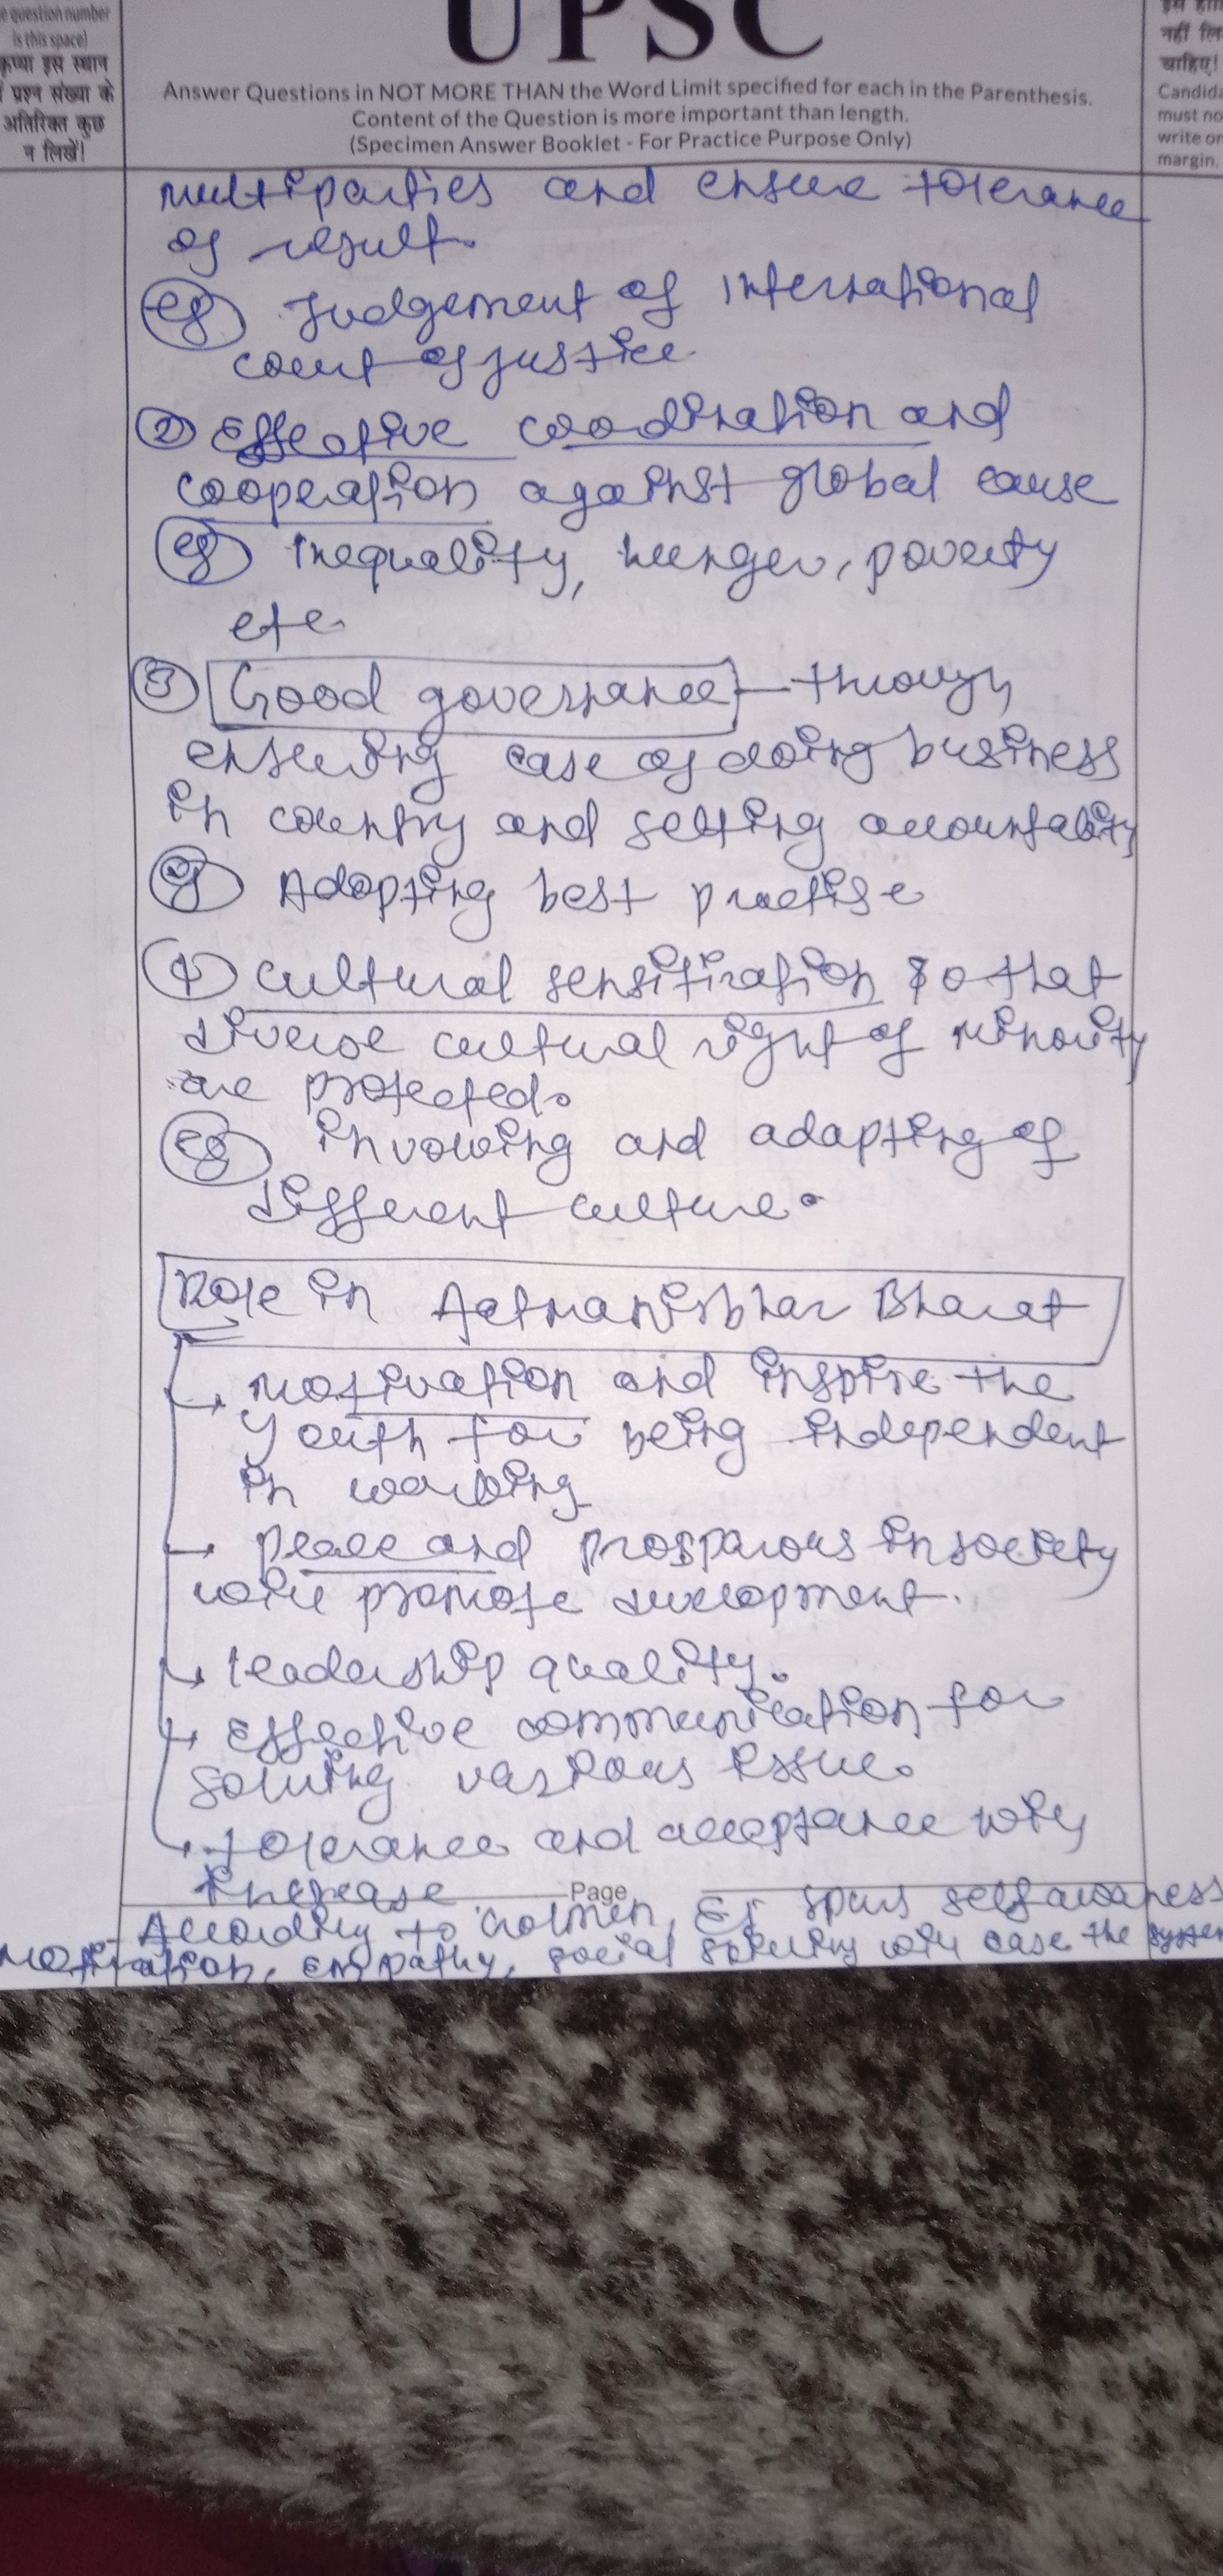 e question number
is this space)
कृप्या इस स्थान
प्रश्न संख्या के
अतिरिक्त कुछ
न लिखें!
UPSC
Answer Questions in NOT MORE THAN the Word Limit specified for each in the Parenthesis.
Content of the Question is more important than length.
(Specimen Answer Booklet - For Practice Purpose Only)
नहीं लि
चाहिए!
Candida
must no
write on
margin.
multiparties and ensure tolerance
of result.
eg Judgement of international
court of justice.
2) Effective coodination and
cooperation against global cause
eg inequality, hunger, poverty
etc.
3) Good governance - through
ensuring ease of doing business
in country and setting accountability
eg Adopting best practise
4) cultural sensitization so that
diverse cultural right of minority
are protected.
eg involving and adapting of
different culture.
Role in Aatmanirbhar Bharat
→ motivation and inspire the
youth for being independent
in working
→ peace and prosparous in society
will promote development.
→ leadership quality.
→ Effective communication for
solving various issue.
→ tolerance and acceptance will
increase
Page
According to Golmen, EI spurs self awarness
motivation, empathy, social will ease the system